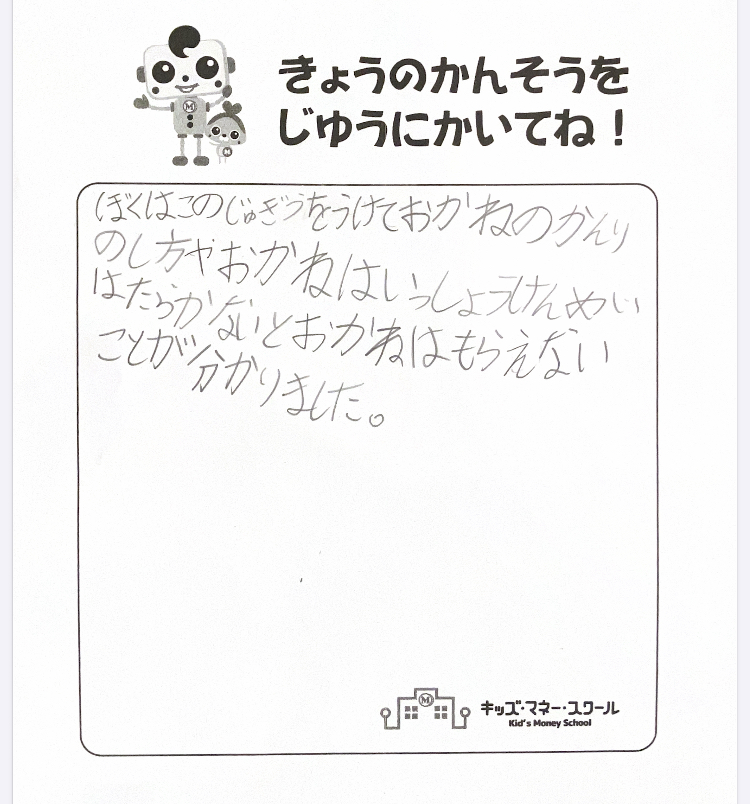 きょうのかんそうを
じゆうにかいてね！
ぼくはこのじゅぎうをうけておかねのかんり
のし方やおかねはいっしょうけんめい
はたらかないとおかねはもらえない
ことが分かりました。
キッズ・マネー・スクール
Kid's Money School